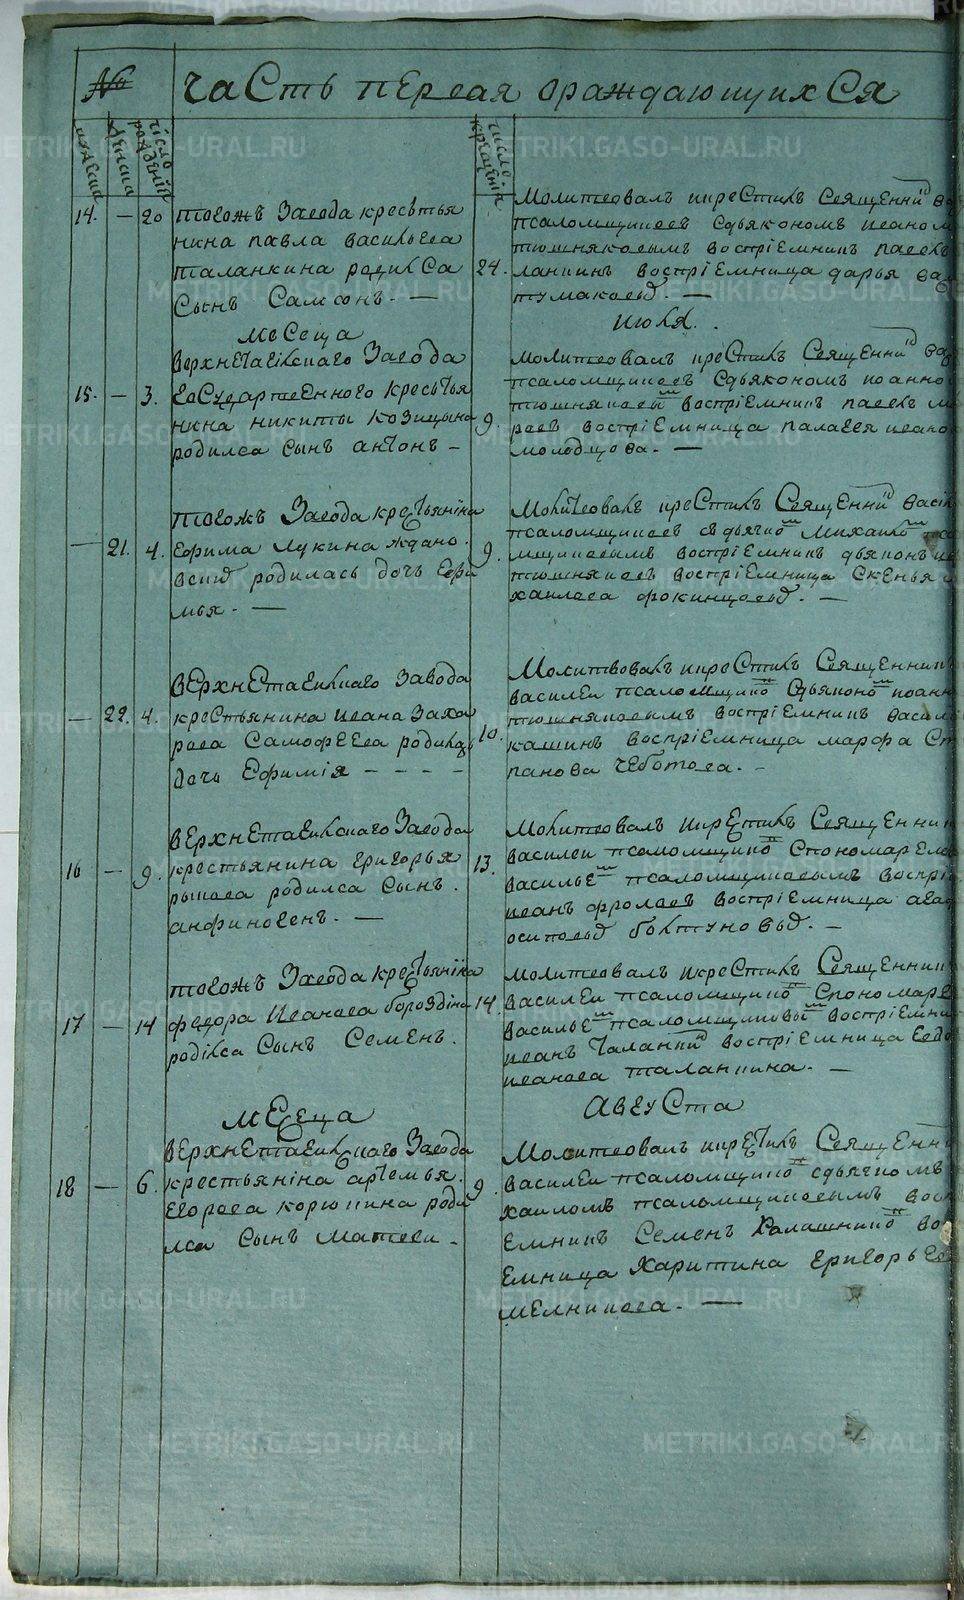 № часть первая ораждающихся
мужеска
женска
число рождений
число крещения
14. — 20
тогожъ Завода кресьтья
нина павла васильева
таланкина родился
Сынъ Самсонъ. —
24.
Молитвовалъ икреСтилъ Священнй
псаломщиковъ Сдьякономъ иваном
тюшняковымъ воспріемникъ павелъ
ланкинъ воспріемница дарья
тумаковы. —
мѣсеца июля.
15. — 3.
верхнетагилскаго Завода
гаСударственного Кресьтья
нина никиты козицына
родилса сынъ антонъ —
9.
молитвовалъ креСтилъ Священнй
псаломщиковъ Сдьякономъ иоанно
тюшняковы воспріемникъ павелъ
ревъ воспріемница палагея ивано
молодцова. —
— 21. 4.
тогожъ Завода крестьяніна
Ефима Лукина ждано.
вскид родилась дочь Ефи
мья. —
9.
Молитвовалъ креСтилъ Священнй васіл
псаломщиковъ сдьячко Михаило
мщиковымъ воспріемникъ дьяконъ
тюшняковъ воспріемница Скенья
хаилова фокинцовы. —
— 22. 4.
верхнетагилскаго Завода
креСтьянина ивана Заха
рова Самофеева родилась
дочь Ефимія - - - -
10.
Молитвовалъ икреСтилъ Священник
василеи псаломщико Сдьяконо иоанн
тюшняковымъ воспріемникъ васил
кашинъ воспріемница марфа Ст
панова чеботова. -
16 — 9.
верхнетагилскаго Завода
крестьянина григорья
рыкова родился Сынъ.
анфиногенъ. —
13.
молитвовалъ икрестилъ Священник
василеи псаломщико Спономарем
василье псаломщиковымъ воспрі
иванъ фролавъ воспріемница агаф
осиповы болтуновы. —
17 — 14
тогожъ Завода крестьяніна
федора Иванова бороздина
роділса Сынъ Семенъ.
14.
молитвовалъ икреСтилъ Священник
василеи псаломщико Спономаре
василье псаломщиковы воспріемни
иванъ Таланкй воспріемница Евдо
иванова таланкина. —
меСеца авгуСта
18 — 6.
верхнетагилскаго Завода
крестьяніна артемья.
Егорова корюкина роди
лса Сынъ матвеи -
9
Молитвовалъ икрестилъ Священни
василеи псаломщико сдьячкомъ
хаиломъ псаломщиковымъ вос
емникъ Семенъ Калашнико во
емница Харитина григорьев
мелникова. —